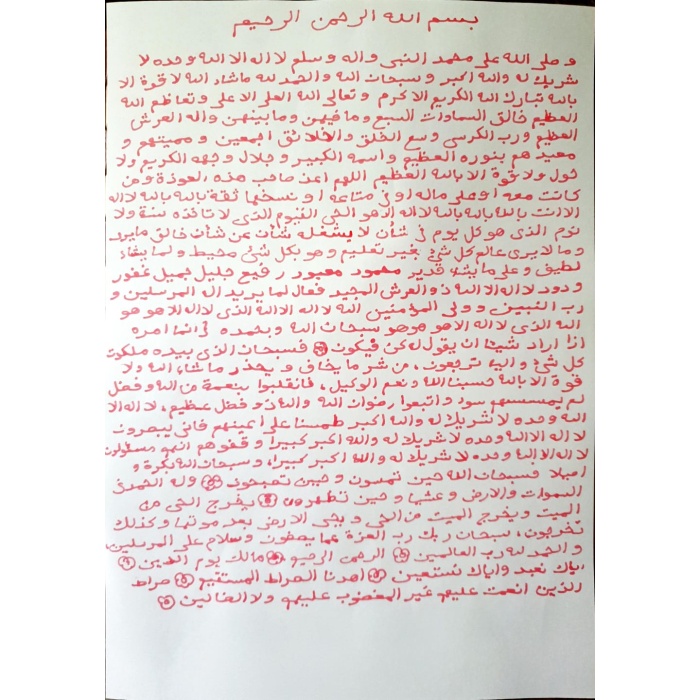 بسم الله الرحمن الرحيم
و صلى الله على محمد النبى واله و سلم لا اله الا الله وحده لا
شريك له والله اكبر و سبحان الله والحمد لله ماشاء الله لا قوة الا
بالله تبارك الله الكريم الاكرم و تعالى الله العلى الاعلى و تعاظم الله
العظيم خالق السماوات السبع وما فيهن وما بينهن واله العرش
العظيم ورب الكرسى وسع الخلق والخلائق اجمعين و مميتهم و
معيد هم بنوره العظيم واسمه الكبير و جلال وجهه الكريم ولا
حول ولا قوة الا بالله العظيم اللهم اعذ صاحب هذه العوذة ومن
كانت معه او على ماله او فى متاعه او نسخها ثقة بالله بالله بالله لااله
الا انت بالله بالله بالله لااله الاهو الحى القيوم الذى لا تاخذه سنة ولا
نوم الذى هو كل يوم فى شأن لا يشغله شأن عن شأن خالق مايرى
وما لا يرى عالم كل شئ بغير تعليم وهو بكل شئ محيط و لما يشاء
لطيف و على ما يشاء قدير محمود معبود رفيع جليل جميل غفور
ودود لا اله الا الله ذو العرش المجيد فعال لما يريد اله المرسلين و
رب النبيين و ولى المؤمنين الله لا اله الا الله الذى لا اله الا هو هو
الله الذى لا اله الا هو هو هو سبحان الله و بحمده انما امره
اذا اراد شيئا ان يقول له كن فيكون فسبحان الذى بيده ملكوت
كل شئ و اليه ترجعون، من شر ما يخاف و يحذر ما شاء الله ولا
قوة الا بالله حسبنا الله و نعم الوكيل، فانقلبوا بنعمة من الله و فضل
لم يمسسهم سوء و اتبعوا رضوان الله والله ذو فضل عظيم، لا اله الا
الله وحده لا شريك له والله اكبر طمسنا على اعينهم فانى يبصرون
لا اله الا الله وحده لا شريك له والله اكبر كبيرا و قفوهم انهم مسئولون
لا اله الا الله وحده لا شريك له والله اكبر كبيرا، و سبحان الله بكرة و
اصيلا فسبحان الله حين تمسون و حين تصبحون وله الحمد فى
السموات والارض و عشيا و حين تظهرون يخرج الحى من
الميت ويخرج الميت من الحى و يحى الارض بعد موتها وكذلك
تخرجون، سبحان ربك رب العزة عما يصفون و سلام على المرسلين
والحمد لله رب العالمين الرحمن الرحيم مالك يوم الدين
اياك نعبد واياك نستعين اهدنا الصراط المستقيم صراط
الذين انعمت عليهم غير المغضوب عليهم ولا الضالين